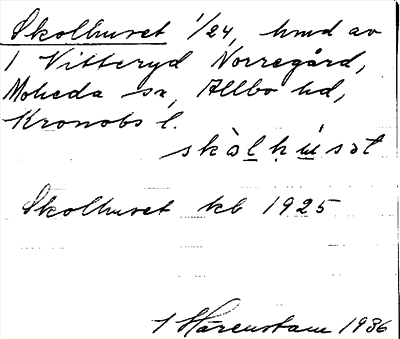 Skolhuset 1/24, hmd av
1 Vitteryd Norregård,
Moheda sn, Allbo hd,
Kronobs l.
skòlhúsət
Skolhuset kb 1925
Härenstam 1936